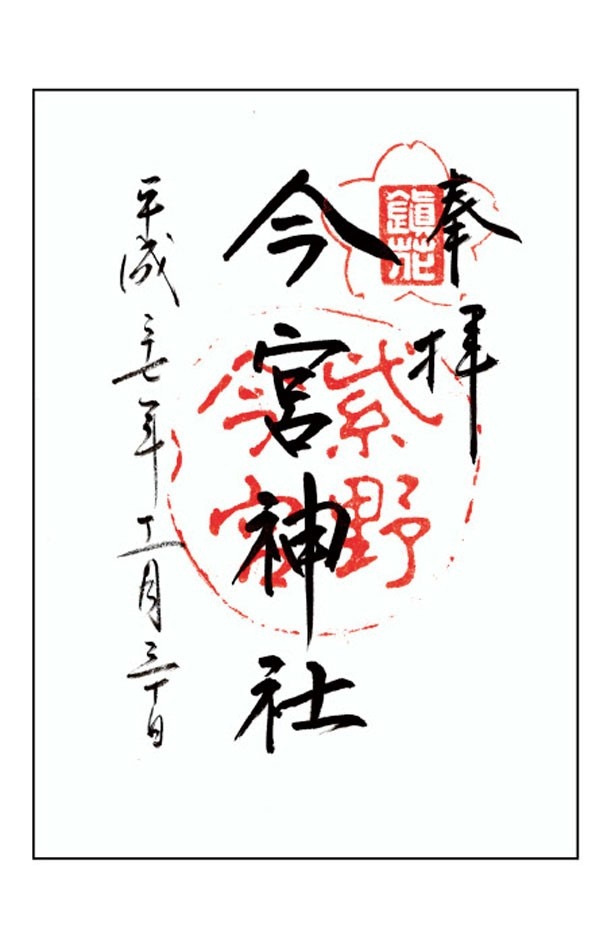 奉拝
鎭花
紫野
今宮
今宮神社
平成二十七年十一月三十日